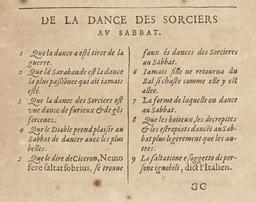 DE LA DANCE DES SORCIERS
AV SABBAT.
1 Que la dance a esté tirce de la
guerre.
2 Que la Sarabande est la dance
la plus passiōnee qui ait iamais
esté.
3 Que la dance des Sorciers est
vne dance de furieux & de gēs
forcenez.
4 Que le Diable prend plaisir au
Sabbat de dancer auec les plus
belles.
5 Que le dire de Ciceron, Nemo
fere saltat sobrius, se trouue
faux és dances des Sorcieres
au Sabbat.
6 Iamais fille ne retourna du
Bal si chaste comme elle y est
allee.
7 La forme de laquelle on dance
au Sabbat.
8 Que les boiteux, les decrepites
& les estropiats dancēt au Sab-
bat plus legerement que les au-
tres.
9 La saltatione e soggetto di per-
sone ignobili, dict l'Italien.
CC